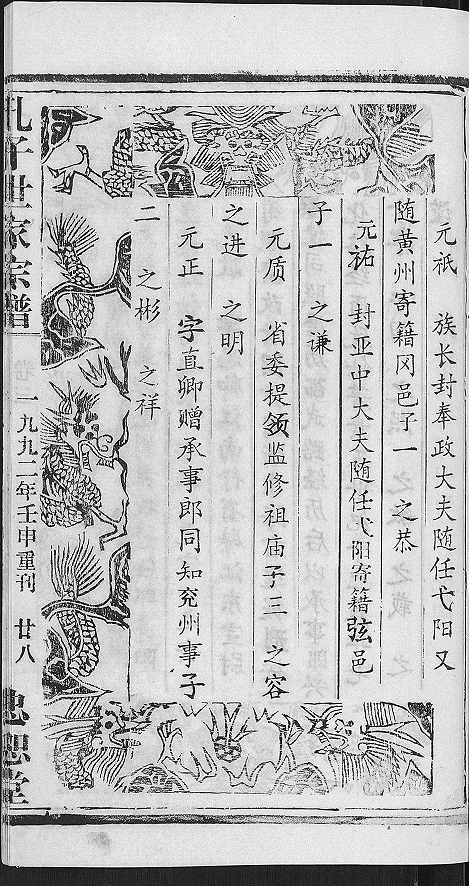 元祇 族长封奉政大夫随任弋阳又
随黄州寄籍冈邑子一 之恭
元祐 封亚中大夫随任弋阳寄籍弦邑
子一 之谦
元质 省委提领监修祖庙子三 之容
之进 之明
元正 字直卿赠承事郎同知兖州事子
二 之彬 之祥
孔子世家宗谱
一九九二年壬申重刊 廿八
忠恕堂